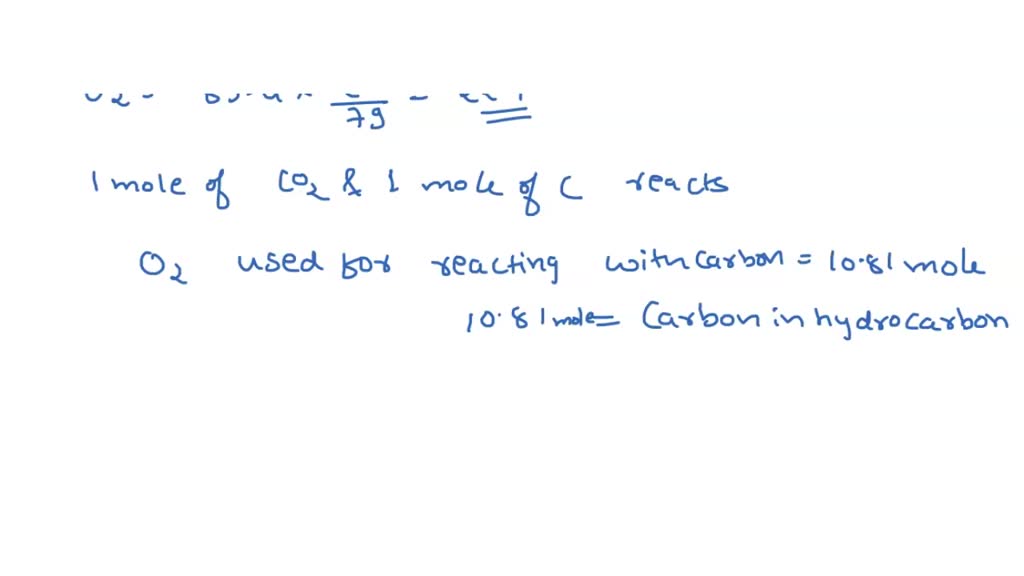 79
1 mole of CO2 & 1 mole of C reacts
O2 used for reacting with carbon = 10.81 mole
10.81 mole = Carbon in hydrocarbon